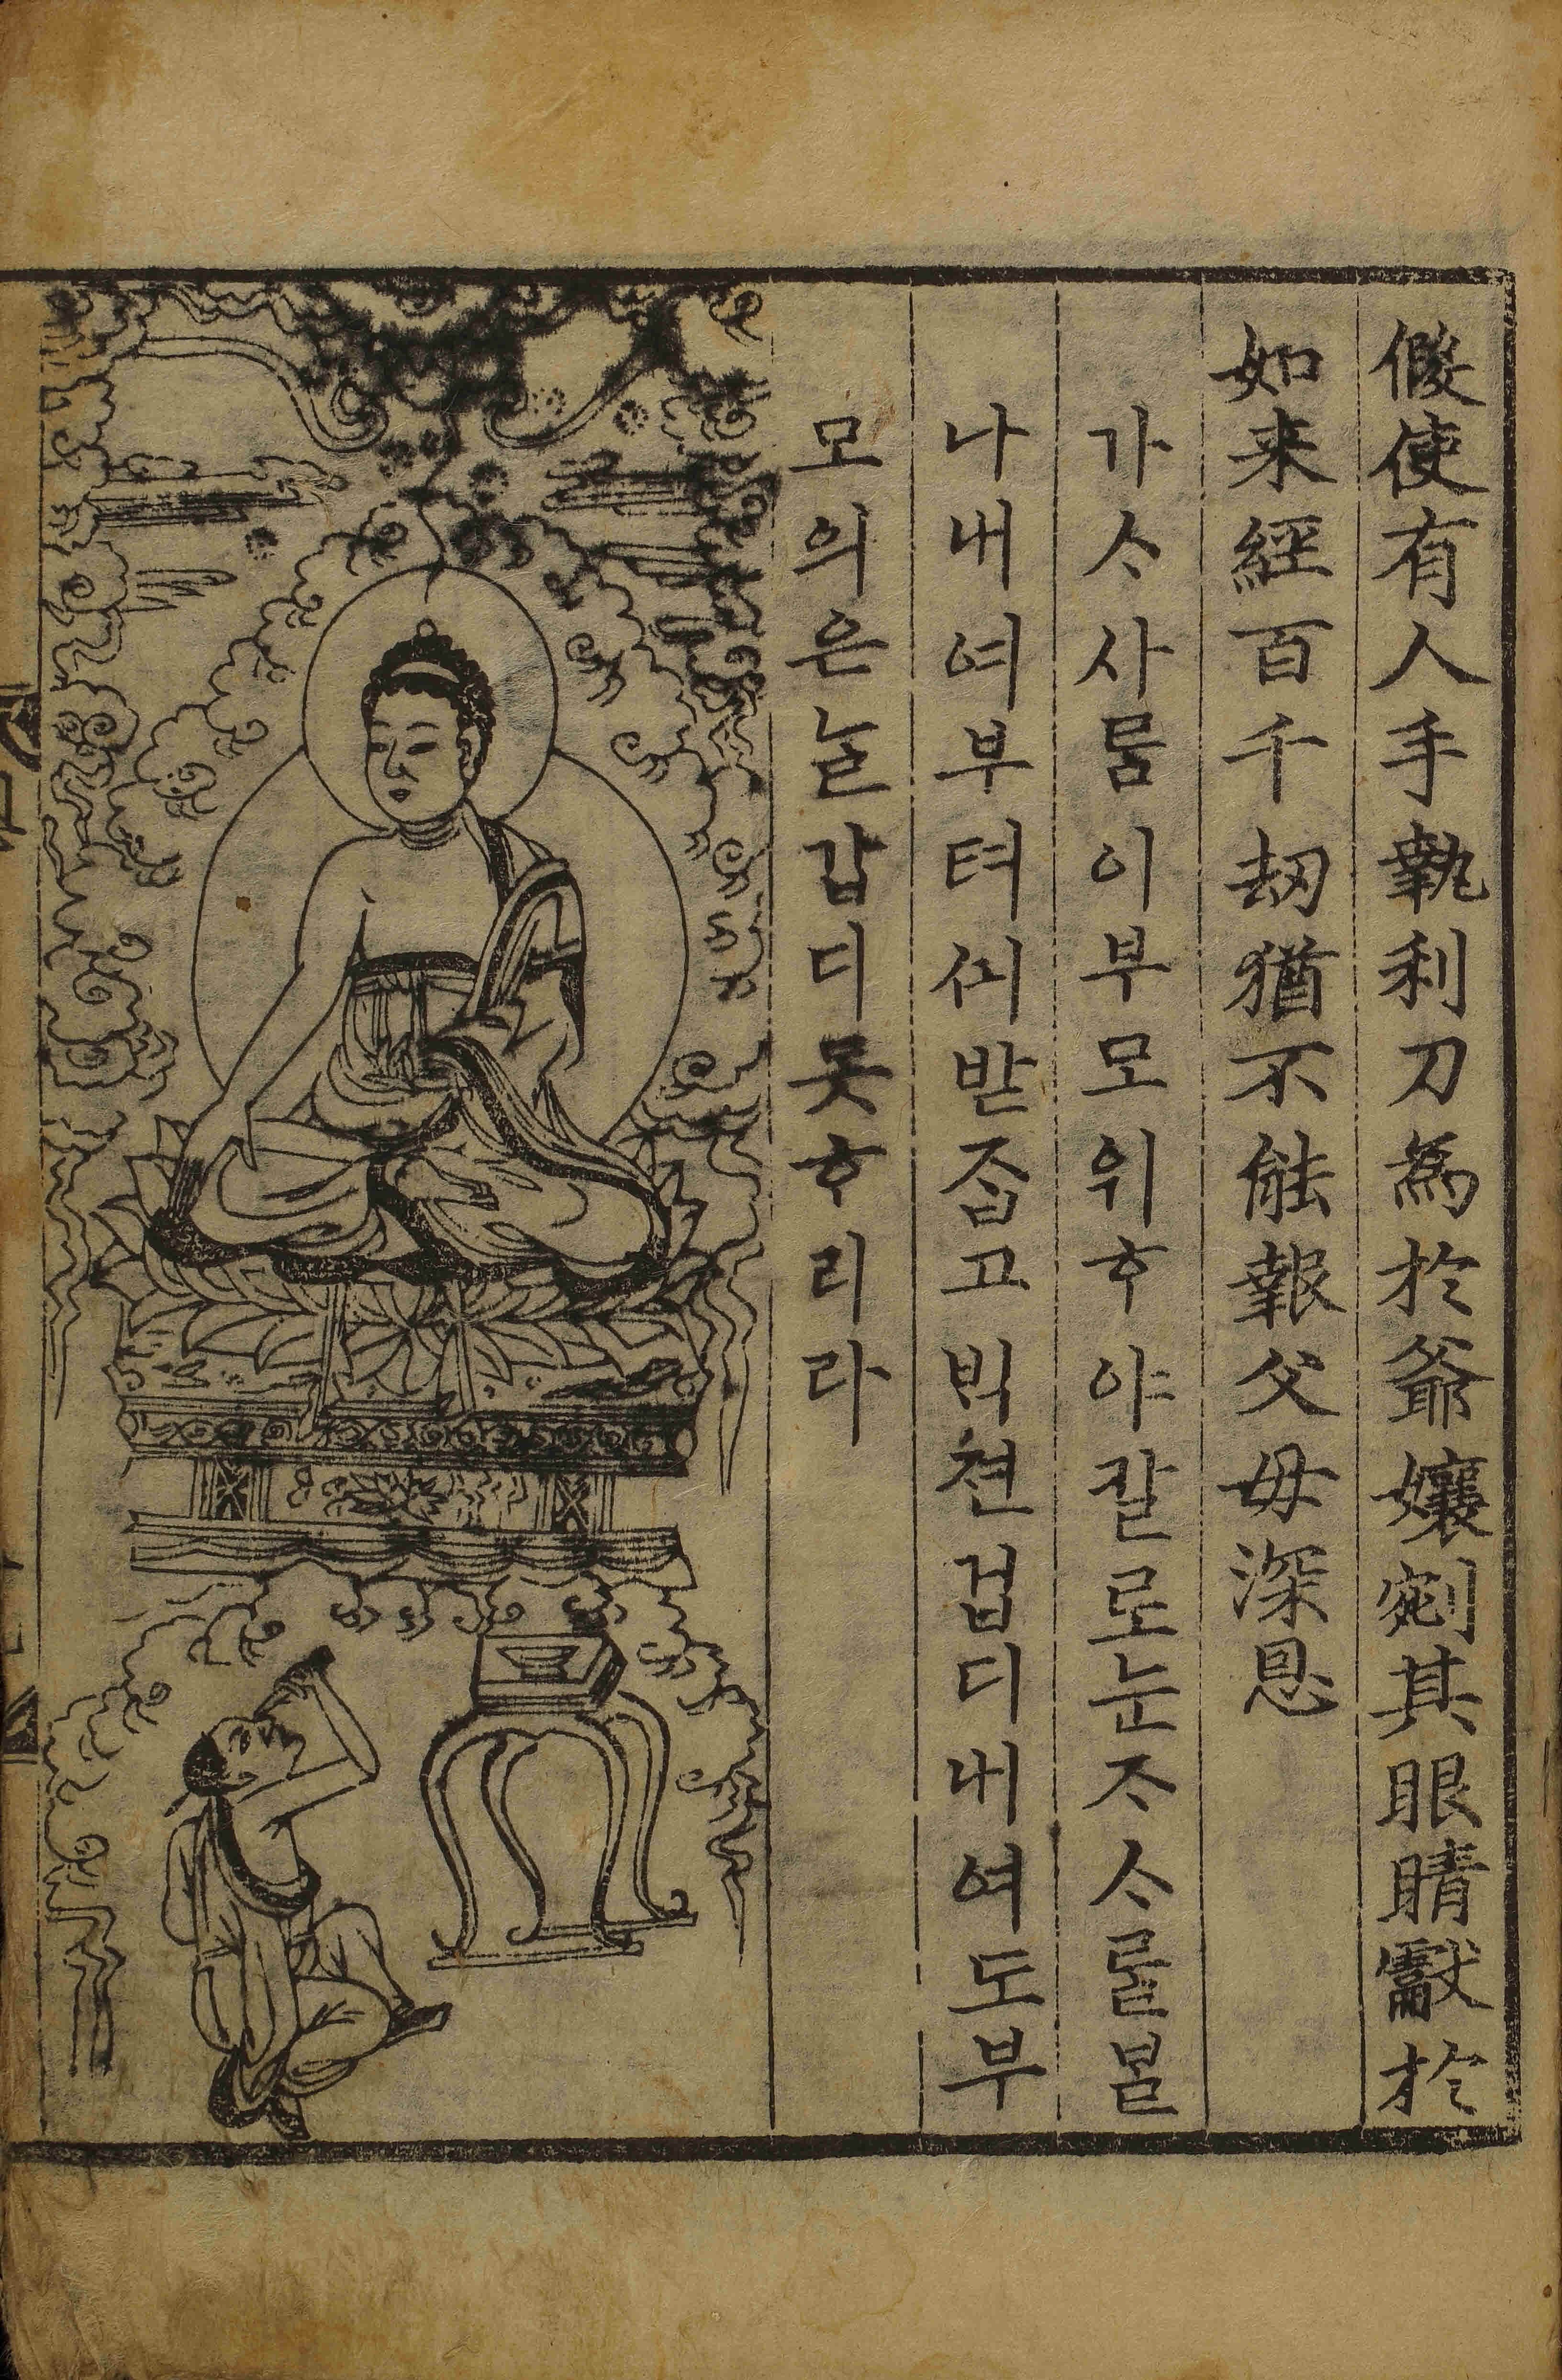 假使有人手執利刀為於爺孃剜其眼睛獻於
如来經百千劫猶不能報父母深恩
가ᄉᆞ사ᄅᆞᆷ이부모위ᄒᆞ야잘로눈ᄌᆞᄉᆞᄅᆞᆯᄇᆞᆯ
나내여부텨ᄭᅴ받ᄌᆞᆸ고ᄇᆡᆨ쳔겁디내여도부
모의은ᄂᆞᆯ갑디못ᄒᆞ리라